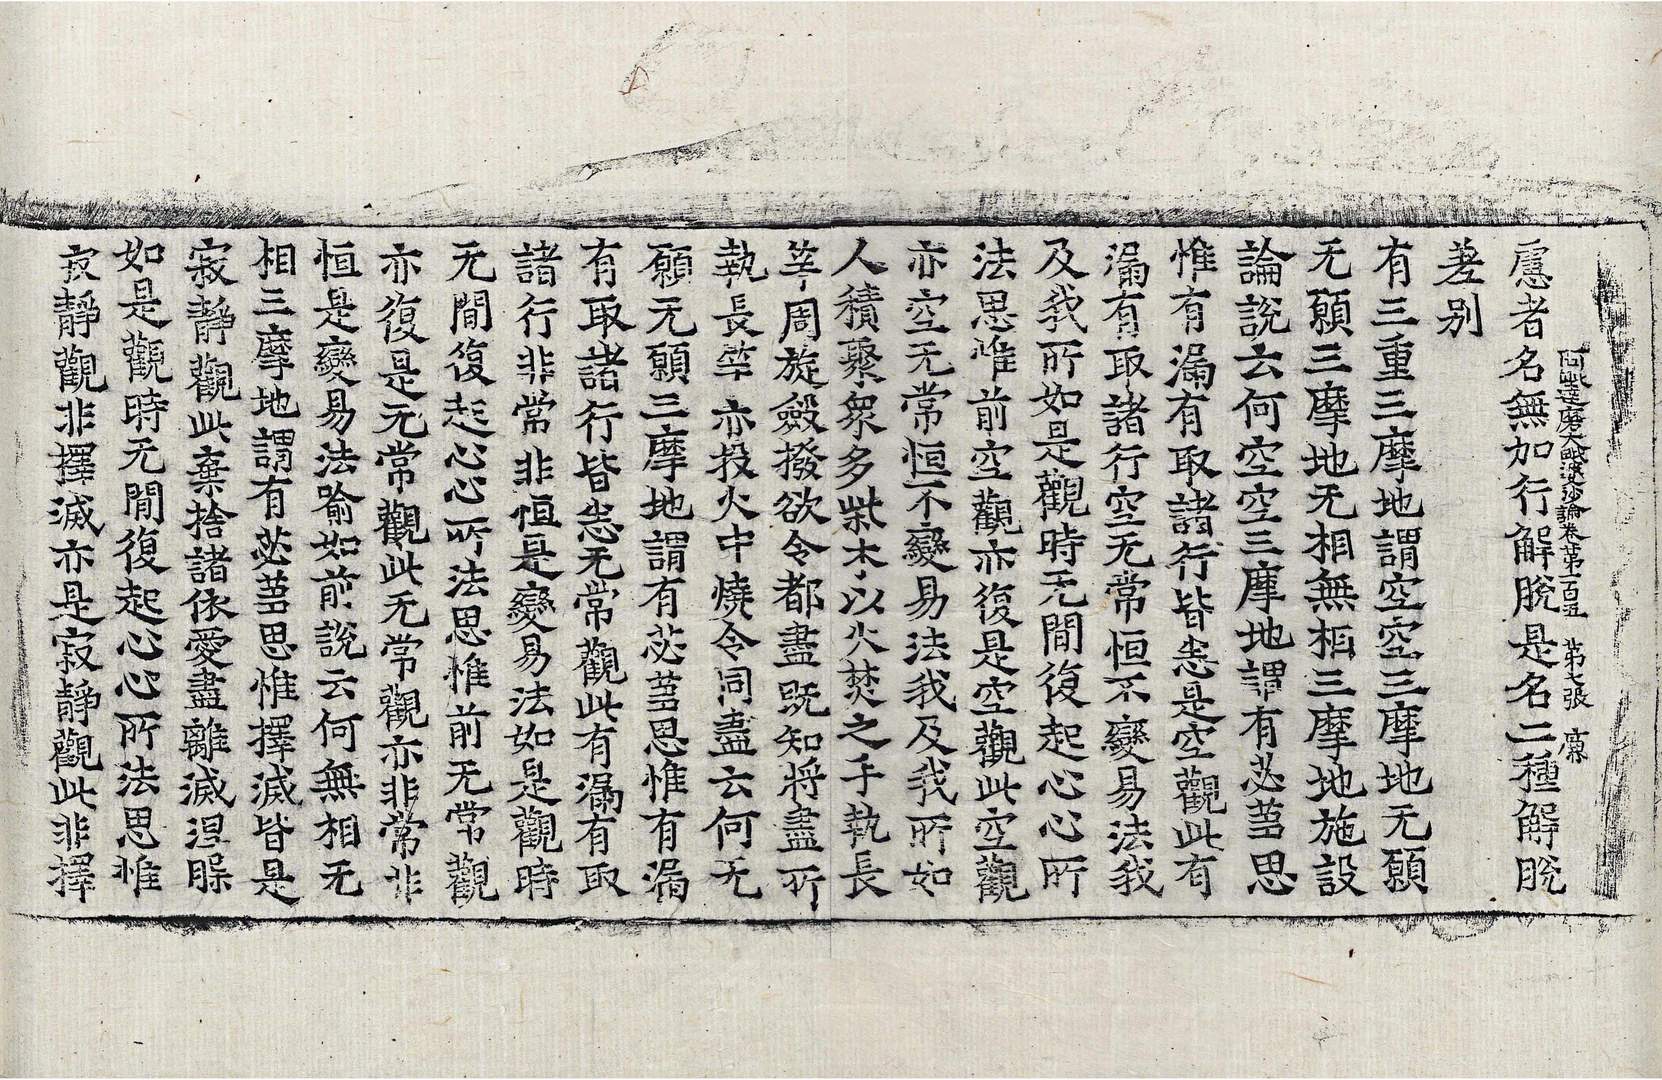 阿毗達磨大毗婆沙論卷第一百五 第七張 廉
慮者名無加行解脫是名二種解脫
差别
有三重三摩地謂空空三摩地无願
无願三摩地无相無相三摩地施設
論說云何空空三摩地謂有苾蒭思
惟有漏有取諸行皆悉是空觀此有
漏有取諸行空无常恒不變易法我
及我所如是觀時无間復起心心所
法思惟前空觀亦復是空觀此空觀
亦空无常恒不變易法我及我所如
人積聚衆多柴木以火焚之手執長
竿周旋斂撥欲令都盡既知將盡所
執長竿亦投火中燒令同盡云何无
願无願三摩地謂有苾蒭思惟有漏
有取諸行皆悉无常觀此有漏有取
諸行非常非恒是變易法如是觀時
无間復起心心所法思惟前无常觀
亦復是无常觀此无常觀亦非常非
恒是變易法喻如前說云何無相无
相三摩地謂有苾蒭思惟擇滅皆是
寂靜觀此棄捨諸依愛盡離滅涅槃
如是觀時无間復起心心所法思惟
寂靜觀非擇滅亦是寂靜觀此非擇